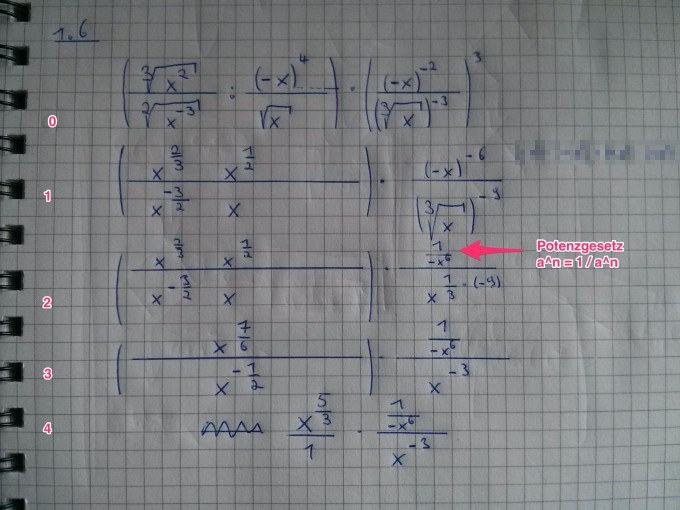 1.6
0 ( ∛x² / ²√x⁻³ : (-x)⁴ / √x ) · ( (-x)⁻² / (∛x)⁻³ )³
1 ( x^(2/3) x^(1/2) / x^(-3/2) x ) · (-x)⁻⁶ / (∛x)⁻⁹
Potenzgesetz
a^n = 1 / a^n
2 ( x^(2/3) x^(1/2) / x^(-3/2) x ) · (1/-x⁶) / x^(1/3 · (-9))
3 ( x^(7/6) / x^(-1/2) ) · (1/-x⁶) / x⁻³
4 x^(5/3) / 1 · (1/-x⁶) / x⁻³